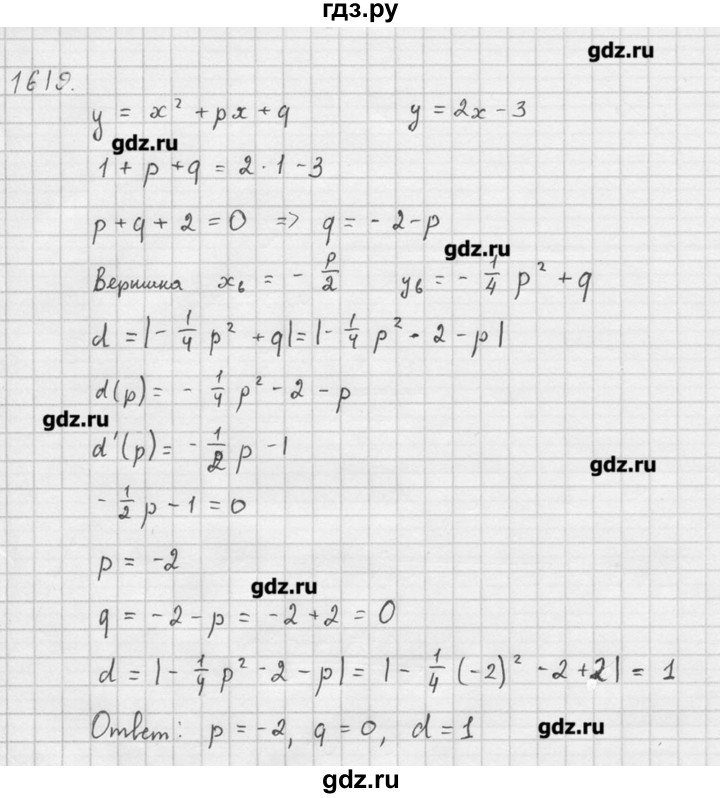 гдз.ру
gdz.ru
1619.
y = x² + px + q y = 2x - 3
gdz.ru
1 + p + q = 2 · 1 - 3
p + q + 2 = 0 => q = - 2 - p
gdz.ru
Вершина xв = - p/2 yв = - 1/4 p² + q
d = |- 1/4 p² + q| = |- 1/4 p² - 2 - p|
d(p) = - 1/4 p² - 2 - p
gdz.ru
d'(p) = - 1/2 p - 1
gdz.ru
- 1/2 p - 1 = 0
p = -2
gdz.ru
q = - 2 - p = - 2 + 2 = 0
d = |- 1/4 p² - 2 - p| = |- 1/4 (-2)² - 2 + 2| = 1
Ответ: p = -2, q = 0, d = 1
gdz.ru
gdz.ru